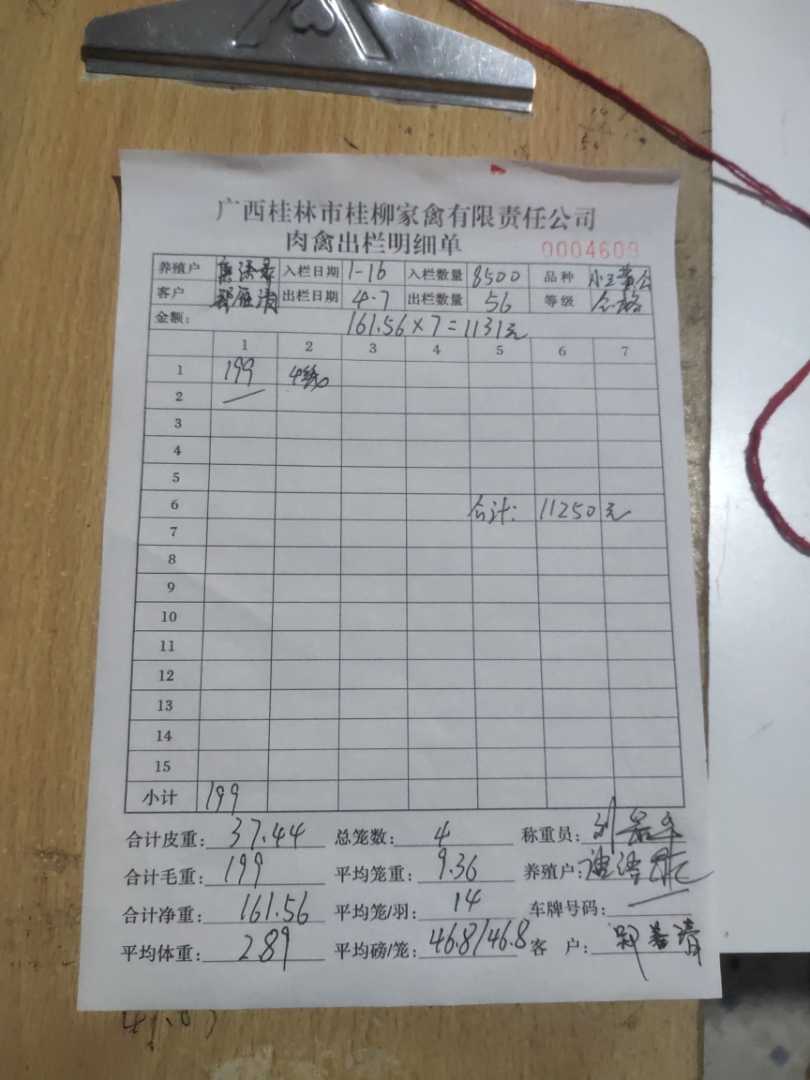 广西桂林市桂柳家禽有限责任公司
肉禽出栏明细单 0004609
养殖户 入栏日期 1-16 入栏数量 8500 品种
客户 出栏日期 4.7 出栏数量 56 等级 合格
金额: 161.56×7=1131元
1 2 3 4 5 6 7
1 199 4
2
3
4
5
6 合计: 11250元
7
8
9
10
11
12
13
14
15
小计 199
合计皮重: 37.44 总笼数: 4 称重员: 刘
合计毛重: 199 平均笼重: 9.36 养殖户:
合计净重: 161.56 平均笼/羽: 14 车牌号码:
平均体重: 289 平均磅/笼: 46.8/46.8 客 户: